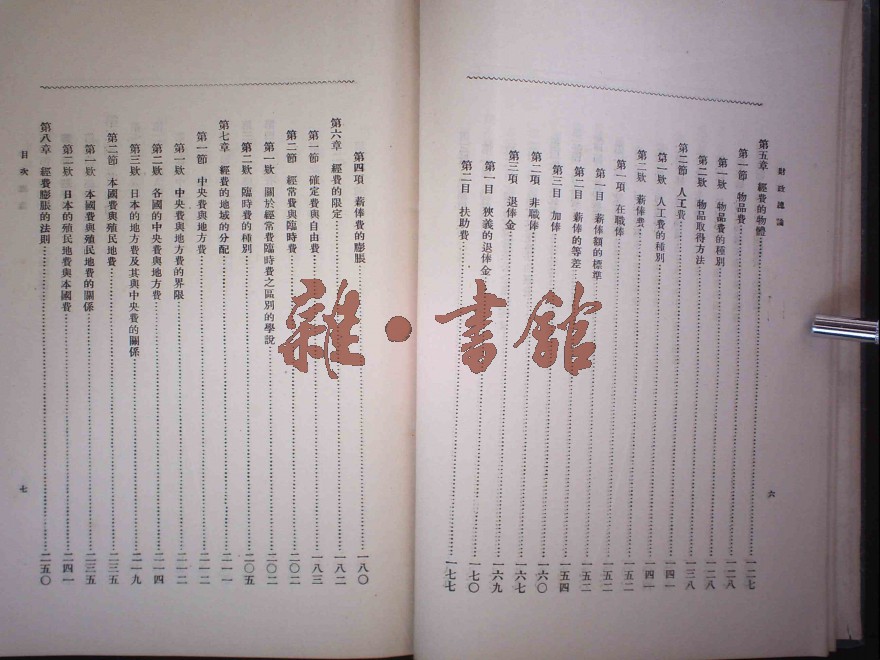 財政總論
第五章　經費的物體……一二七
第一節　物品費……一二八
第一欵　物品費的種別……一二八
第二欵　物品取得方法……一三八
第二節　人工費……一四一
第一欵　人工費的種別……一四一
第二欵　薪俸費……一五二
第一項　在職俸……一五二
第一目　薪俸額的標準……一五二
第二目　薪俸的等差……一五二
第三目　加俸……一五四
第二項　非職俸……一六〇
第三項　退俸金……一六七
第一目　狹義的退俸金……一六九
第二目　扶助費……一七〇
一七七
六
第四項　薪俸費的膨脹……一八〇
第六章　經費的限定……一八二
第一節　確定費與自由費……一八三
第二節　經常費與臨時費……二〇二
第一欵　關於經常費臨時費之區別的學說……二〇二
第二欵　臨時費的種別……二〇五
第七章　經費的地域的分配……二一一
第一節　中央費與地方費……二一二
第一欵　中央費與地方費的界限……二一二
第二欵　各國的中央費與地方費……二一四
第三欵　日本的地方費及其與中央費的關係……二一九
第二節　本國費與殖民地費……二三五
第一欵　本國費與殖民地費的關係……二三五
第二欵　日本的殖民地費與本國費……二四一
第八章　經費膨脹的法則……二五〇
目次
七
雜·書館